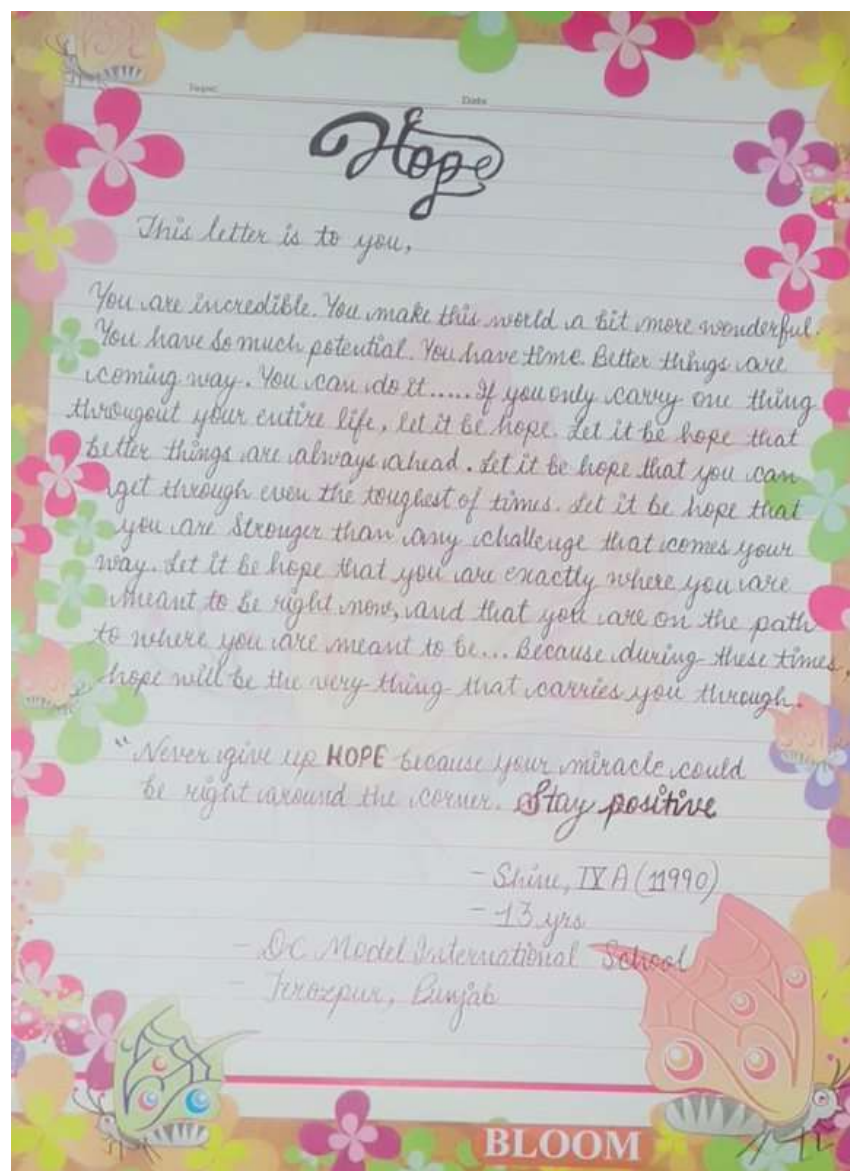 Topic Date
Hope
This letter is to you,
You are incredible. You make this world a bit more wonderful.
You have so much potential. You have time. Better things are
coming way. You can do it..... If you only carry one thing
througout your entire life, let it be hope. Let it be hope that
better things are always ahead. Let it be hope that you can
get through even the toughest of times. Let it be hope that
you are Stronger than any challenge that comes your
way. Let it be hope that you are exactly where you are
meant to be right now, and that you are on the path
to where you are meant to be... Because during these times,
hope will be the very thing that carries you through.
"Never give up HOPE because your miracle could
be right around the corner. Stay positive
- Shine, IX A (11990)
- 13 yrs
- DC Model International School
- Ferozpur, Punjab
BLOOM